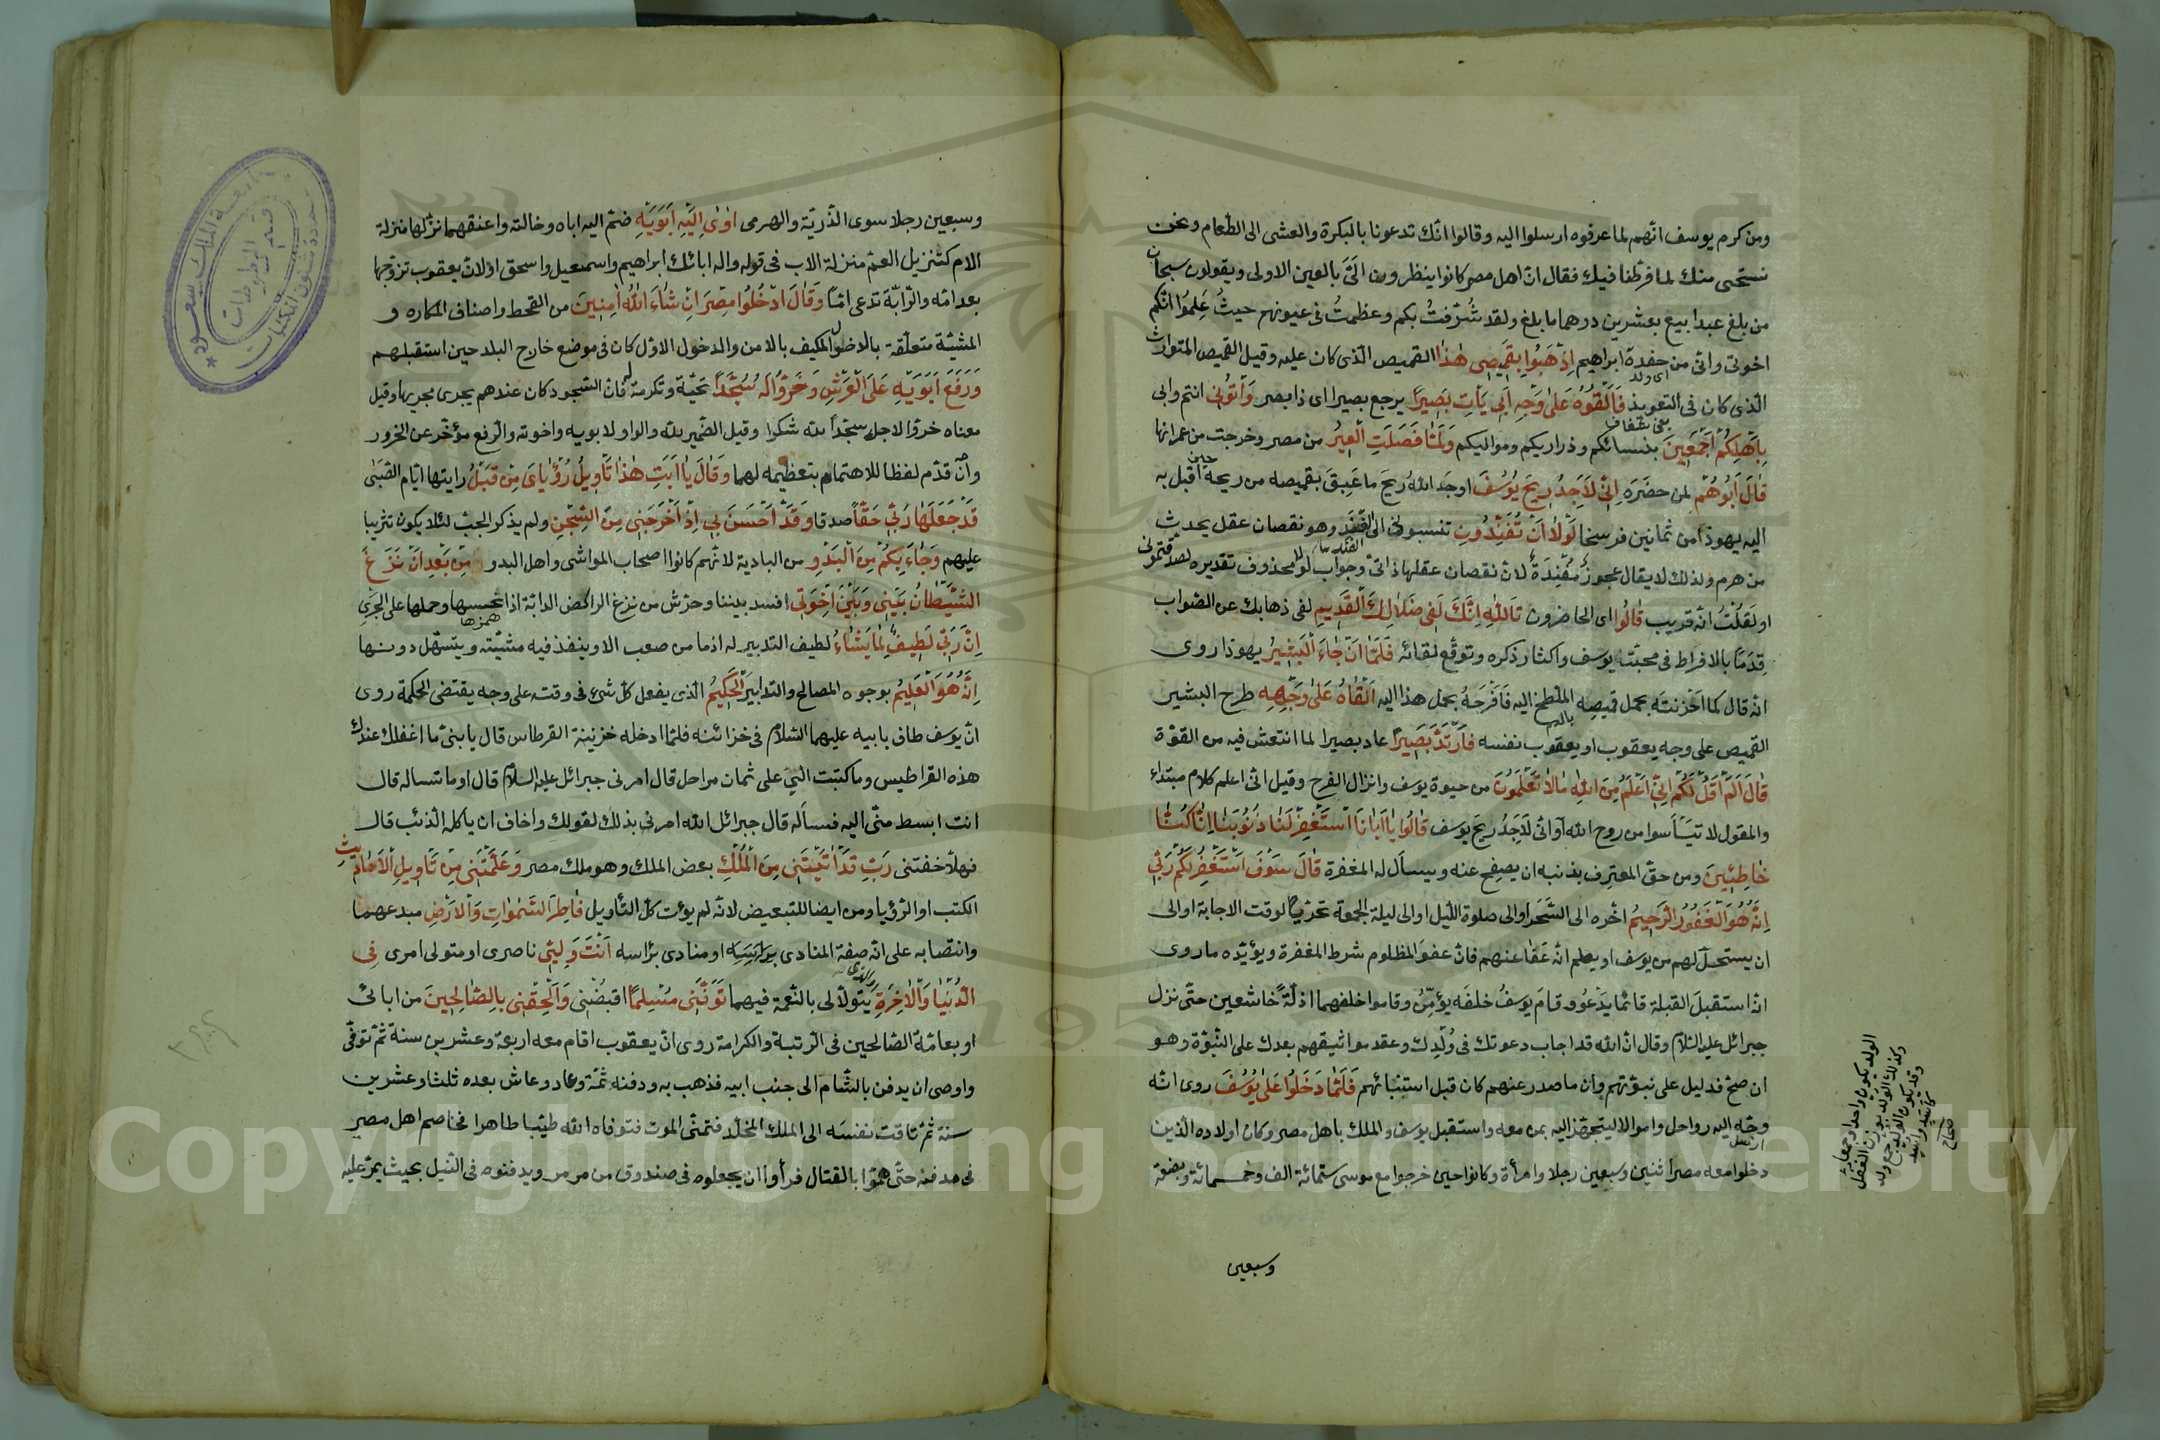 ومن كرم يوسف انهم لما عرفوه ارسلوا اليه وقالوا انك تدعونا بالبكرة والعشى الى الطعام ونحن
نستحى منك لما فرطنا فيك فقال ان اهل مصر كانوا ينظرون الىّ بالعين الاولى ويقولون سبحان
من بلغ عبدا بيع بعشرين درهما ما بلغ ولقد شُرّفتُ بكم وعظمتُ فى عيونهم حيثُ عَلِموُا انكم
اخوتى وانى من حفدة ابراهيم اِذْهَبُوا بِقَمِيصِى هٰذا القميص الذى كان عليه وقيل القميص المتوارث
اى ولد
الذى كان فى التعويذ فَاَلْقُوُهُ عَلىٰ وَجْهِ اَبِى يَأتِ بَصِيرًا يرجع بصيرا اى ذا بصر وَأْتُونِى انتم وابى
بِاَهْلِكُمْ اَجْمَعِينَ بنسائكم وذراريكم ومواليكم وَلَمّٰا فَصَلَتِ الْعِيرُ من مصر وخرجت من عمرانها
قٰالَ اَبُوهُمْ لمن حضَرَه اِنِّى لَاَجِدُ رِيحَ يُوسُفَ اوجَد اللهُ ريحَ ما عَبِقَ بقميصه من ريحه حين اقبل به
اليه يهوذا من ثمانين فرسخا لَوْلاٰ اَنْ تُفَنِّدُونِ تنسبونى الى الفَنَد وهو نقصان عقل يحدث
من هرم ولذلك لا يقال عجوز مُفْنِدَةٌ لان نقصان عقلها ذاتى وجواب لولا محذوف تقديره لصدقتمونى
او لَقلْتُ انه قريب قٰالُوا اى الحاضرون تَاللّٰهِ اِنَّكَ لَفِى ضَلاٰلِكَ الْقَدِيمِ لفى ذهابك عن الصواب
قِدَمًا بالافراط فى محبّته يوسف واكثار ذكره وتوقّع لقائه فَلَمّٰا اَنْ جٰاءَ الْبَشِيرُ يهوذا روى
انه قال كما احْزنتَه بحمل قميصه الملطخ بالدم اليه فَاَفْرِحَهُ بحمل هذا اليه اَلْقٰاهُ عَلىٰ وَجْهِهِ طرح البشير
القميص على وجه يعقوب او يعقوب نفسه فَارْتَدَّ بَصِيرًا عاد بصيرا لما انتعش فيه من القوّة
قٰالَ اَلَمْ اَقُلْ لَكُمْ اِنِّى اَعْلَمُ مِنَ اللّٰهِ مٰا لاٰ تَعْلَمُونَ من حيوة يوسف وانزال الفرح وقيل انى اعلم كلام مبتداء
والمقول لا تيأسوا من روح الله او انى لَاَجِدُ ريحَ يوسف قٰالُوا يٰا اَبٰانَا اسْتَغْفِرْ لَنٰا ذُنُوبَنٰا اِنّٰا كُنّٰا
خٰاطِئِينَ ومن حق المعترف بذنبه ان يصفح عنه ويسأل له المغفرة قٰالَ سَوْفَ اَسْتَغْفِرُ لَكُمْ رَبِّى
اِنَّهُ هُوَ الْغَفُورُ الرَّحِيمُ اخّره الى السَّحَر او الى صلوة الليل او الى ليلة الجمعة تحرّيًا لوقت الاجابة او الى
ان يستحلّ لهم من يوسف او يعلم انه عَفا عنهم فان عفوَ المظلوم شرط المغفرة ويؤيّده ما روى
انه استقبلَ القبلة قائما يَدْعُو وقامَ يوسفُ خلفَه يؤمّنُ وقاموا خلفهما اذلّةً خاشعين حتى نزل
جبرائل عليه السلام وقال ان الله قد اجاب دعوتك فى وُلْدِك وعقد مواثيقهم بعدك على النبوّة وهو
ان صحّ فدليل على نبوّتهم وأن ما صدر عنهم كان قبل استنبائهم فَلَمّٰا دَخَلُوا عَلىٰ يُوسُفَ روى انه
وجّه اليه رواحل واموالا ليتجهّز اليه بمن معه واستقبل يوسف والملك باهل مصر وكان اولاده الذين
دخلوا معه مصر اثنين وسبعين رجلا وامرأة وكانوا حين خرجوا مع موسى ستمائة الف وخمسمائة وبضعة
وسبعين
وسبعين رجلا سوى الذريّة والهرمى اٰوىٰ اِلَيْهِ اَبَوَيْهِ ضمّ اليه اباه وخالته واعتقهما نزّلها منزلة
الام كتنزيل العمّ منزلة الاب فى قوله واله ابائك ابراهيم واسمعيل واسحق اولان يعقوب تزوّجها
بعد امّه والرّابّة تدعى امّا وَقٰالَ ادْخُلُوا مِصْرَ اِنْ شٰاءَ اللّٰهُ اٰمِنِينَ من القحط واصناف المكاره و
المشيّة متعلّقة بالدخول المكيف بالامن والدخول الاوّل كان فى موضع خارج البلد حين استقبلهم
وَرَفَعَ اَبَوَيْهِ عَلَى الْعَرْشِ وَخَرُّوا لَهُ سُجَّدًا تحيّة وتكرمة له فان السجود كان عندهم يجرى مجريها وقيل
معناه خرّوا لاجله سجّدا لله شكرا وقيل الضمير لله والواو لابويه واخوته والرفع مؤخّر عن الخرور
وأن قدّم لفظا للاهتمام بتعظيمه لهما وَقٰالَ يٰا اَبَتِ هٰذا تَأْوِيلُ رُؤْيٰاىَ مِنْ قَبْلُ رايتها ايّام الصّبىٰ
قَدْ جَعَلَهٰا رَبِّى حَقًّا صدقا وَقَدْ اَحْسَنَ بِى اِذْ اَخْرَجَنِى مِنَ السِّجْنِ ولم يذكر الجبّ لئلا يكون تثريبا
عليهم وَجٰاءَ بِكُمْ مِنَ الْبَدْوِ من البادية لانهم كانوا اصحاب المواشى واهل البدو مِنْ بَعْدِ اَنْ نَزَغَ
الشَّيْطٰانُ بَيْنِى وَبَيْنَ اِخْوَتِى افسد بيننا وحرّش من نزغ الراكض الدابّة اذا نخسها وحملها على الجرى
همزها
اِنَّ رَبِّى لَطِيفٌ لِمٰا يَشٰاءُ لطيف التدبير له اذ ما من صعب الا وينفذ فيه مشيّته ويتسهّل دونها
اِنَّهُ هُوَ الْعَلِيمُ بوجوه المصالح والتدابير الْحَكِيمُ الذى يفعل كل شئ فى وقته على وجه يقتضى الحكمة روى
ان يوسف طاف بابيه عليهما السّلام فى خزائنه فلمّا ادخله خزينة القرطاس قال يا بنىّ ما اغفلك عندك
هذه القراطيس وما كتبت الىّ على ثمان مراحل قال امرنى جبرائل عليه السلام قال او ما تساله قال
انت ابسط منّى اليه فسأله قال جبرائل الله امرنى بذلك لقولك واخاف ان ياكله الذئب قال
فهلّا خفتنى رَبِّ قَدْ اٰتَيْتَنِى مِنَ الْمُلْكِ بعض الملك وهو ملك مصر وَعَلَّمْتَنِى مِنْ تَأْوِيلِ الْاَحٰادِيثِ
الكتب او الرّؤيا ومن ايضا للتبعيض لانه لم يؤت كلّ التّأويل فٰاطِرَ السَّمٰوَاتِ وَالْاَرْضِ مبدعهما
وانتصابه على انه صفة المنادى براسه او منادى براسه اَنْتَ وَلِيِّى ناصرى او متولى امرى فِى
الدُّنْيٰا وَالْاٰخِرَةِ او الذى يتولّانى بالنعمة فيهما تَوَفَّنِى مُسْلِمًا اقبضْنى وَاَلْحِقْنِى بِالصّٰالِحِينَ من ابائى
او بعامّة الصّالحين فى الرتبة والكرامة روى ان يعقوب اقام معه اربعة وعشرين سنة ثمّ توفّى
واوصى ان يدفن بالشّام الى جنب ابيه فذهب به ودفنه ثمّة وعاد وعاش بعده ثلثا وعشرين
سنة ثمّ تاقت نفسَه الى الملك المخلّد فتمنّى الموت فتوفاه الله طيّبا طاهرا فخاصم اهل مصر
فى مدفنه حتّى همّوا بالقتال فرأوا ان يجعلوه فى صندوق من مرمر ويدفنوه فى النّيل بحيث يمرّ عليه
الولد يكون واحدا وجمعا
وكذلك الولد بوزن القفل
وقد يكون الولد جمع ولد
كاسد واسد
صحاح
جامعة الملك سعود
قسم المخطوطات
عمادة شئون المكتبات
Copyright © King Saud University
195